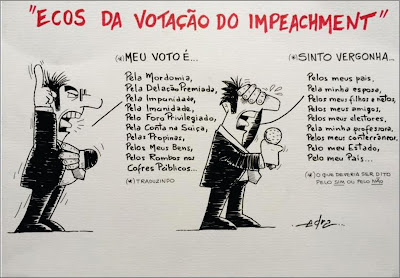 "ECOS DA VOTAÇÃO DO IMPEACHMENT"
(*) MEU VOTO É...
Pela Mordomia,
Pela Delação Premiada,
Pela Impunidade,
Pela Imunidade,
Pelo Foro Privilegiado,
Pela Conta na Suíça,
Pelas Propinas,
Pelos Meus Bens,
Pelos Rombos nos
Cofres Públicos...
(*) TRADUZINDO
(*) SINTO VERGONHA...
Pelos meus pais,
Pela minha esposa,
Pelos meus filhos e netos,
Pelos meus amigos,
Pelos meus eleitores,
Pela minha professora,
Pelos meus conterrâneos,
Pelo meu Estado,
Pelo meu País...
(*) O QUE DEVERIA SER DITO
PELO SIM OU PELO NÃO
edra